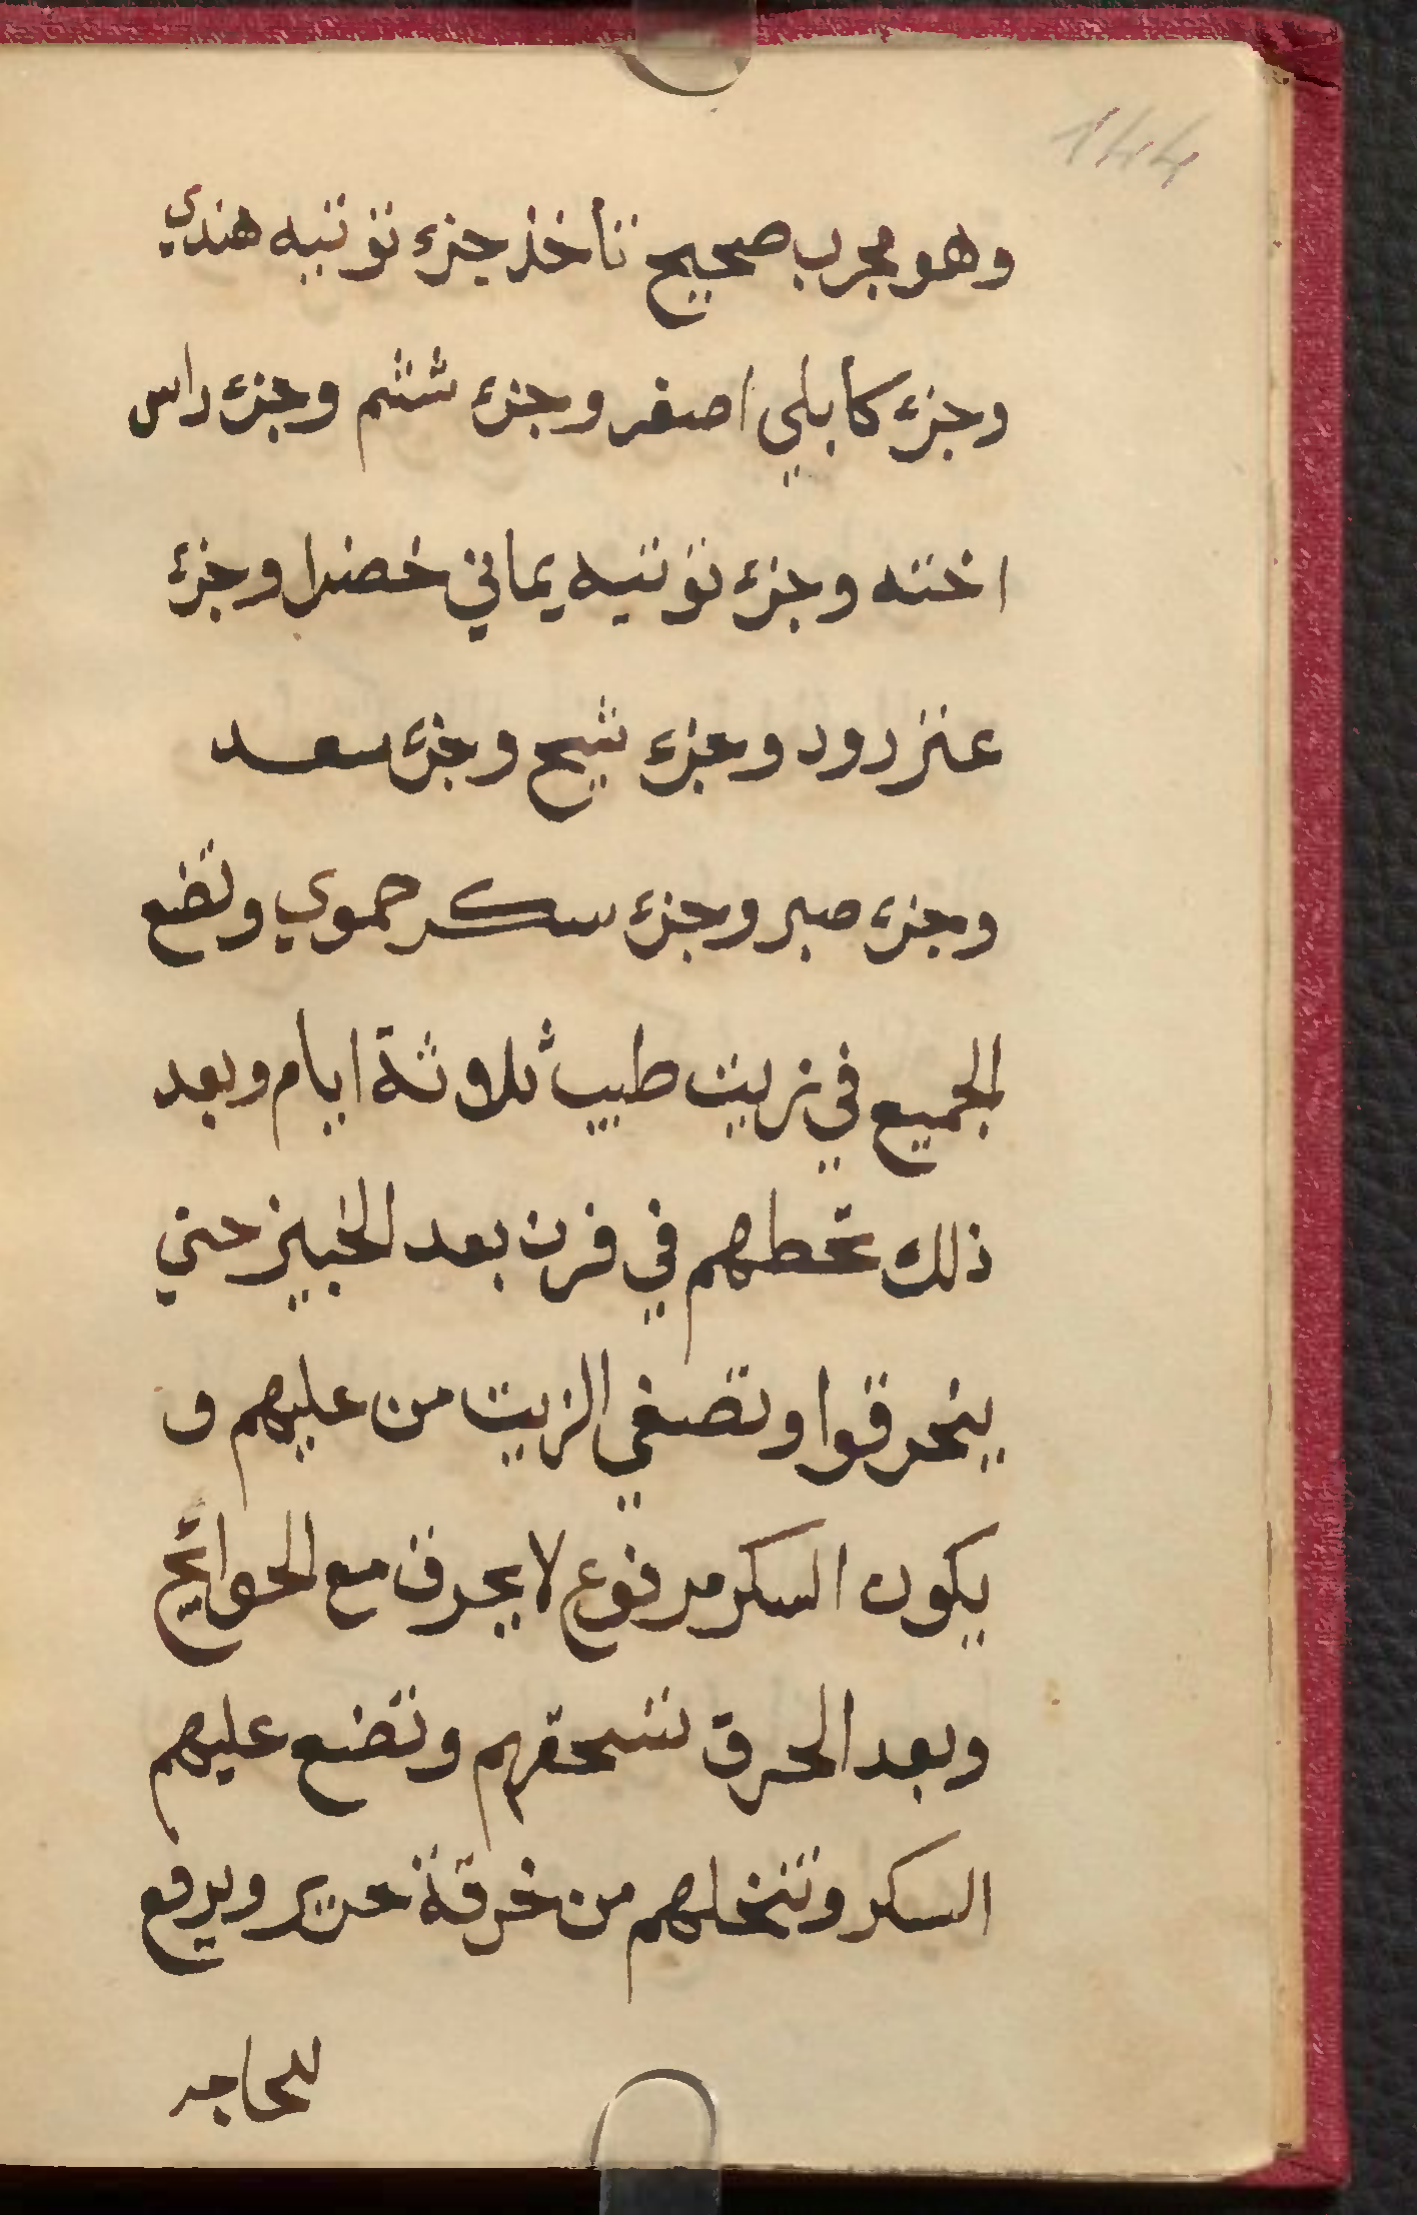 144
وهو مجرب صحيح تأخذ جزء توتيه هندي
وجزء كابلي اصفر وجزء ششم وجزء راس
اختنه وجزء توتيه يماني خضرا وجزء
عنزرود وجزء شيح وجزء سعد
وجزء صبر وجزء سكر حموي وتضع
الجميع في زيت طيب ثلاثة ايام وبعد
ذلك تحطهم في فرن بعد الخبيز حتي
ينحرقوا وتصفي الزيت من عليهم و
يكون السكر مرفوع لا يحرق مع الحوائج
وبعد الحرق تسحقهم وتضع عليهم
السكر وتنخلهم من خرقة حرير ويرفع
للحاجه